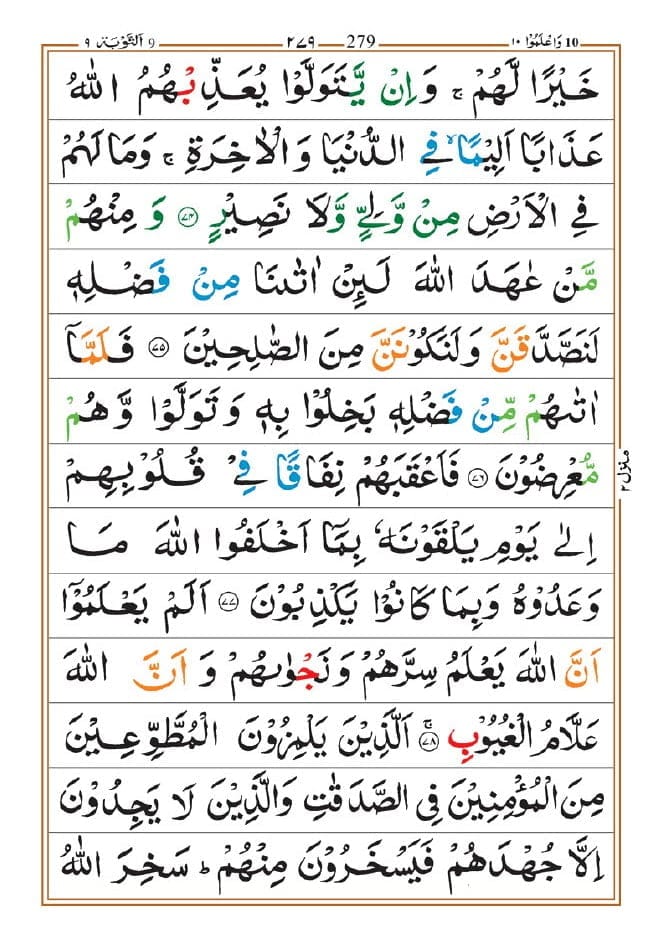 وَاعْلَمُوْا ١٠ 10 279 ٢٧٩ 9 اَلتَّوْبَة ٩
خَيْرًا لَّهُمْ ۚ وَاِنْ يَّتَوَلَّوْا يُعَذِّبْهُمُ اللّٰهُ
عَذَابًا اَلِيْمًا ۙ فِي الدُّنْيَا وَالْاٰخِرَةِ ۚ وَمَا لَهُمْ
فِي الْاَرْضِ مِنْ وَّلِيٍّ وَّلَا نَصِيْرٍ ۝٧٤ وَمِنْهُمْ
مَّنْ عٰهَدَ اللّٰهَ لَئِنْ اٰتٰىنَا مِنْ فَضْلِهٖ
لَنَصَّدَّقَنَّ وَلَنَكُوْنَنَّ مِنَ الصّٰلِحِيْنَ ۝٧٥ فَلَمَّآ
اٰتٰىهُمْ مِّنْ فَضْلِهٖ بَخِلُوْا بِهٖ وَتَوَلَّوْا وَّهُمْ
مُّعْرِضُوْنَ ۝٧٦ فَاَعْقَبَهُمْ نِفَاقًا فِيْ قُلُوْبِهِمْ
اِلٰى يَوْمِ يَلْقَوْنَهٗ بِمَآ اَخْلَفُوا اللّٰهَ مَا
وَعَدُوْهُ وَبِمَا كَانُوْا يَكْذِبُوْنَ ۝٧٧ اَلَمْ يَعْلَمُوْٓا
اَنَّ اللّٰهَ يَعْلَمُ سِرَّهُمْ وَنَجْوٰىهُمْ وَاَنَّ اللّٰهَ
عَلَّامُ الْغُيُوْبِ ۝٧٨ۚ اَلَّذِيْنَ يَلْمِزُوْنَ الْمُطَّوِّعِيْنَ
مِنَ الْمُؤْمِنِيْنَ فِي الصَّدَقٰتِ وَالَّذِيْنَ لَا يَجِدُوْنَ
اِلَّا جُهْدَهُمْ فَيَسْخَرُوْنَ مِنْهُمْ ؕ سَخِرَ اللّٰهُ
منزل ٢